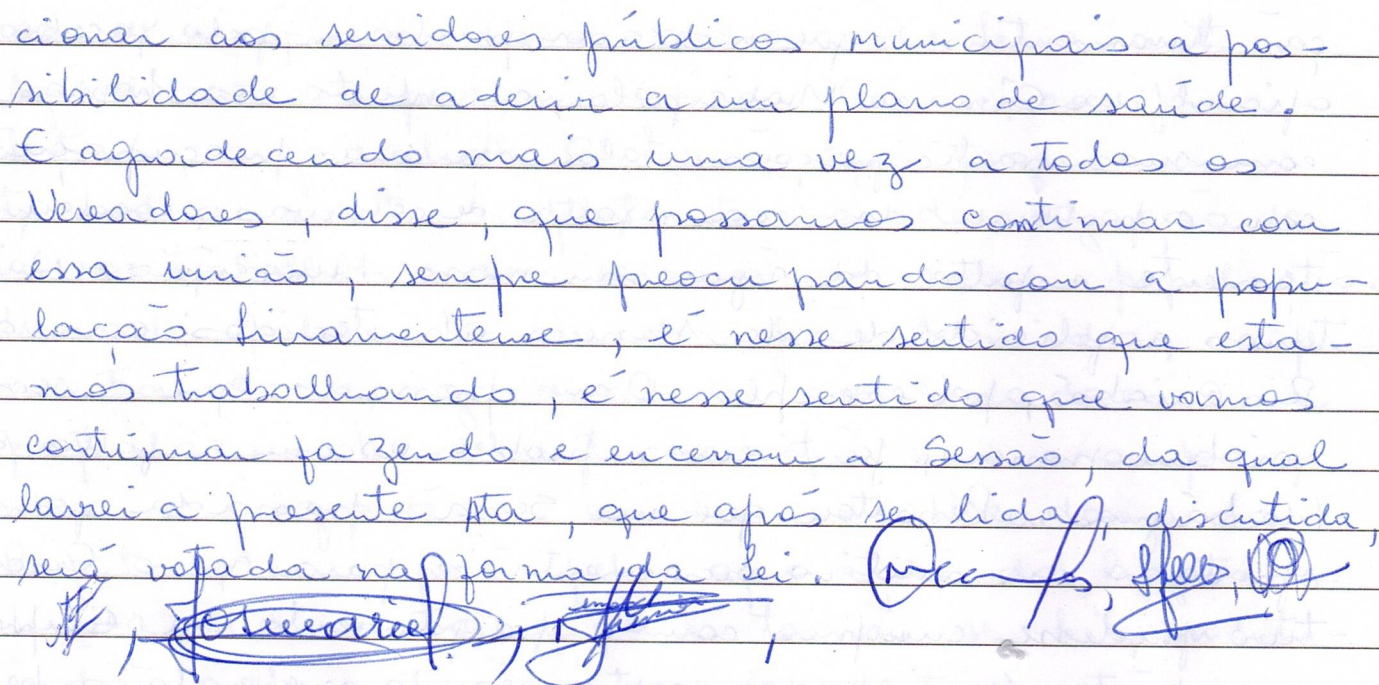 cionar aos servidores públicos municipais a pos-
sibilidade de aderir a um plano de saúde.
E agradecendo mais uma vez a todos os
Vereadores, disse, que possamos continuar com
essa união, sempre preocupando com a popu-
lação livramentense, é nesse sentido que esta-
mos trabalhando, é nesse sentido que vamos
continuar fazendo e encerrou a Sessão, da qual
lavrei a presente Ata, que após se lida, discutida,
será votada na forma da Lei.